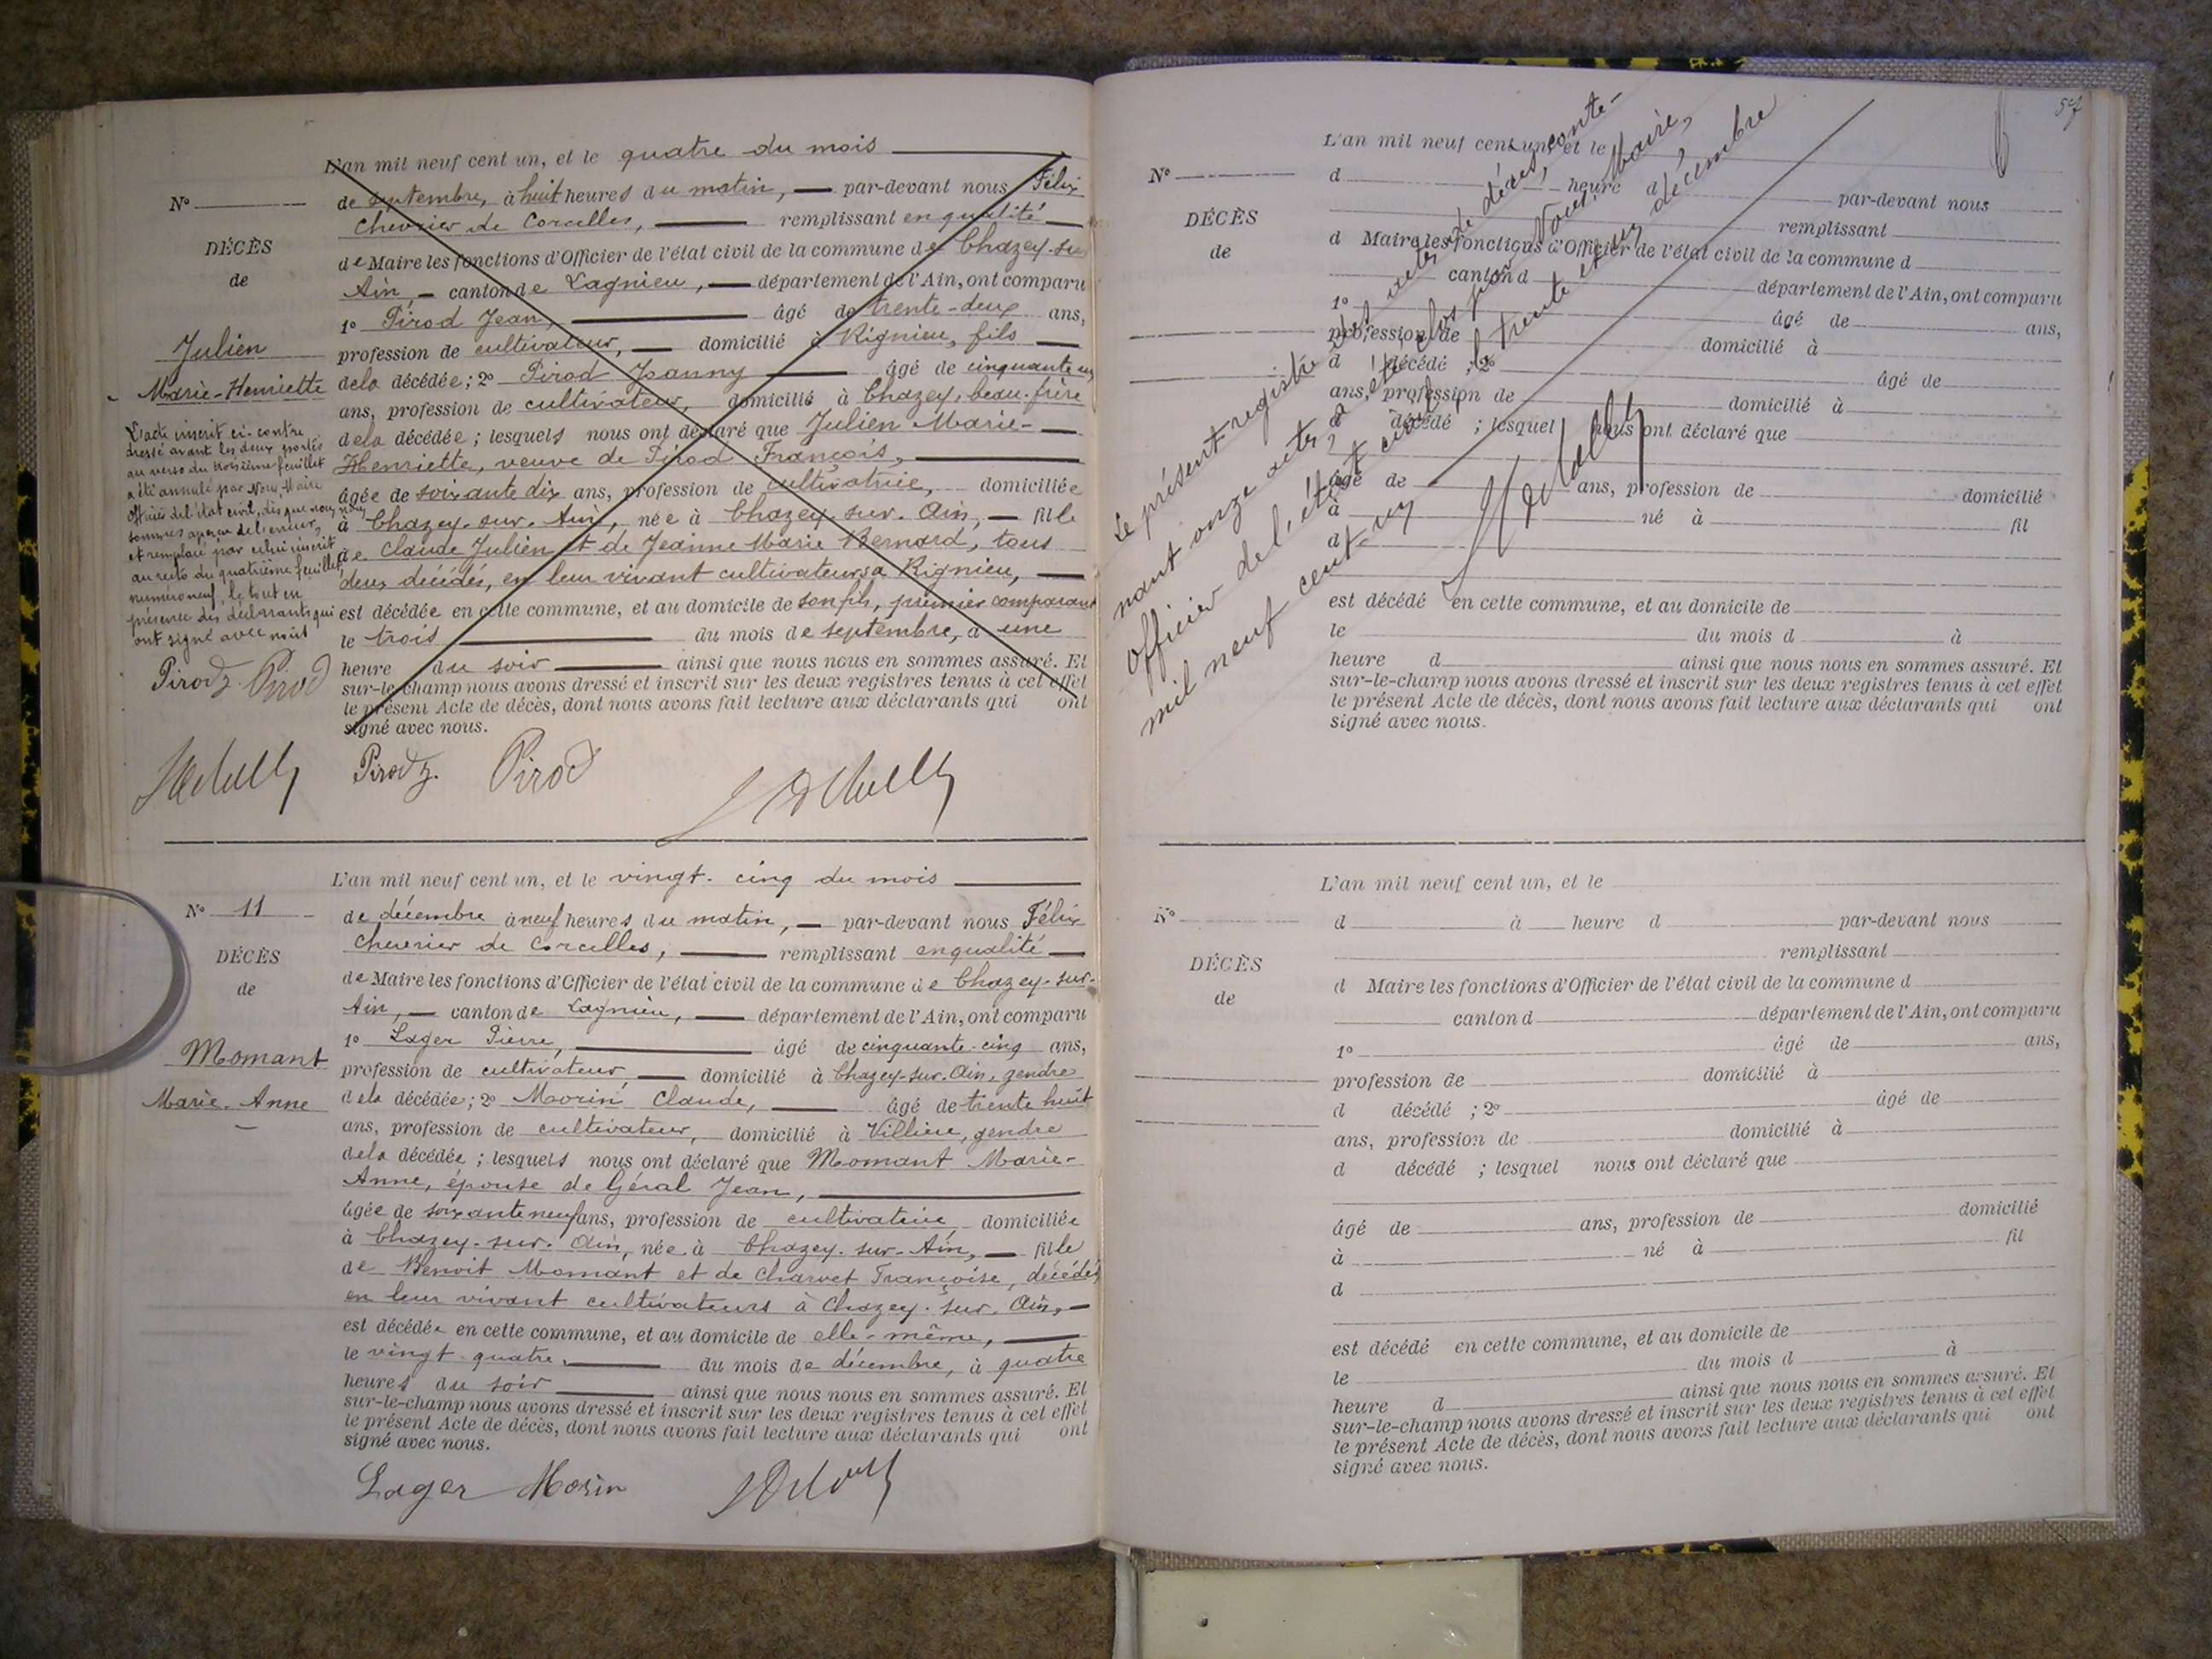 L'an mil neuf cent un, et le quatre du mois
N°
de septembre, à huit heures du matin, par-devant nous Félix
Chevrier de Corcelles, remplissant en qualité
DÉCÈS
de Maire les fonctions d'Officier de l'état civil de la commune de Chazey-sur
de
Ain, canton de Lagnieu, département de l'Ain, ont comparu
1° Pirod Jean, âgé de trente-deux ans,
Julien
profession de cultivateur, domicilié à Rignieu, fils
Marie-Henriette
de la décédée ; 2° Pirod Joanny âgé de cinquante un
ans, profession de cultivateur, domicilié à Chazey, beau-frère
de la décédée ; lesquels nous ont déclaré que Julien Marie-
Henriette, veuve de Pirod François,
âgée de soixante dix ans, profession de cultivatrice, domiciliée
à Chazey-sur-Ain, née à Chazey-sur-Ain, fille
de Claude Julien et de Jeanne Marie Bernard, tous
deux décédés, en leur vivant cultivateurs à Rignieu,
est décédée en cette commune, et au domicile de son fils, premier comparant
le trois du mois de septembre, à une
heure du soir ainsi que nous nous en sommes assuré. Et
sur-le-champ nous avons dressé et inscrit sur les deux registres tenus à cet effet
le présent Acte de décès, dont nous avons fait lecture aux déclarants qui ont
signé avec nous.
L'acte inscrit ci-contre
dressé avant les deux portés
au verso du troisième feuillet
a été annulé par Nous, Maire
Officier de l'état civil, dès que nous nous
sommes aperçu de l'erreur,
et remplacé par celui inscrit
au recto du quatrième feuillet
numéro neuf, le tout en
présence des déclarants qui
ont signé avec nous
Pirod J. Pirod
Pirod J. Pirod
L'an mil neuf cent un, et le vingt-cinq du mois
N° 11
de décembre à neuf heures du matin, par-devant nous Félix
Chevrier de Corcelles, remplissant en qualité
DÉCÈS
de Maire les fonctions d'Officier de l'état civil de la commune de Chazey-sur-
de
Ain, canton de Lagnieu, département de l'Ain, ont comparu
1° Lager Pierre, âgé de cinquante-cinq ans,
Momant
profession de cultivateur, domicilié à Chazey-sur-Ain, gendre
Marie-Anne
de la décédée ; 2° Morin Claude, âgé de trente huit
ans, profession de cultivateur, domicilié à Villieu, gendre
de la décédée ; lesquels nous ont déclaré que Momant Marie-
Anne, épouse de Géral Jean,
âgée de soixante neuf ans, profession de cultivatrice, domiciliée
à Chazey-sur-Ain, née à Chazey-sur-Ain, fille
de Benoit Momant et de Charvet Françoise, décédés
en leur vivant cultivateurs à Chazey-sur-Ain,
est décédée en cette commune, et au domicile de elle-même,
le vingt-quatre du mois de décembre, à quatre
heures du soir ainsi que nous nous en sommes assuré. Et
sur-le-champ nous avons dressé et inscrit sur les deux registres tenus à cet effet
le présent Acte de décès, dont nous avons fait lecture aux déclarants qui ont
signé avec nous.
Lager Morin
57
L'an mil neuf cent un, et le
N°
d heure d par-devant nous
remplissant
DÉCÈS
d Maire les fonctions d'Officier de l'état civil de la commune d
de
canton d département de l'Ain, ont comparu
1° âgé de ans,
profession de domicilié à
d décédé ; 2° âgé de
ans, profession de domicilié à
d décédé ; lesquel nous ont déclaré que
âgé de ans, profession de domicilié
à né à fil
d
est décédé en cette commune, et au domicile de
le du mois d à
heure d ainsi que nous nous en sommes assuré. Et
sur-le-champ nous avons dressé et inscrit sur les deux registres tenus à cet effet
le présent Acte de décès, dont nous avons fait lecture aux déclarants qui ont
signé avec nous.
Le présent registre des actes de décès, conte-
nant onze actes a été clos par Nous, Maire,
officier de l'état civil, le trente et un décembre
mil neuf cent un
L'an mil neuf cent un, et le
N°
d à heure d par-devant nous
remplissant
DÉCÈS
d Maire les fonctions d'Officier de l'état civil de la commune d
de
canton d département de l'Ain, ont comparu
1° âgé de ans,
profession de domicilié à
d décédé ; 2° âgé de
ans, profession de domicilié à
d décédé ; lesquel nous ont déclaré que
âgé de ans, profession de domicilié
à né à fil
d
est décédé en cette commune, et au domicile de
le du mois d à
heure d ainsi que nous nous en sommes assuré. Et
sur-le-champ nous avons dressé et inscrit sur les deux registres tenus à cet effet
le présent Acte de décès, dont nous avons fait lecture aux déclarants qui ont
signé avec nous.